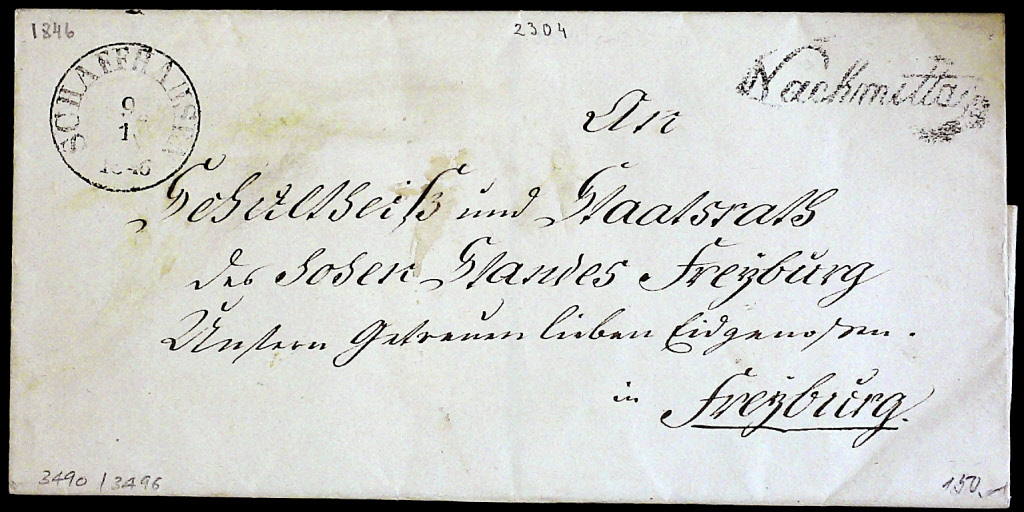 1846
2304
SCHAFFHAUSEN
9
1
1846
Nachmittag
An
Schultheiß und Staatsrath
des hohen Standes Freÿburg
Unsern Getreuen lieben Eidgenossen.
in Freÿburg.
3490 / 3496
150.-